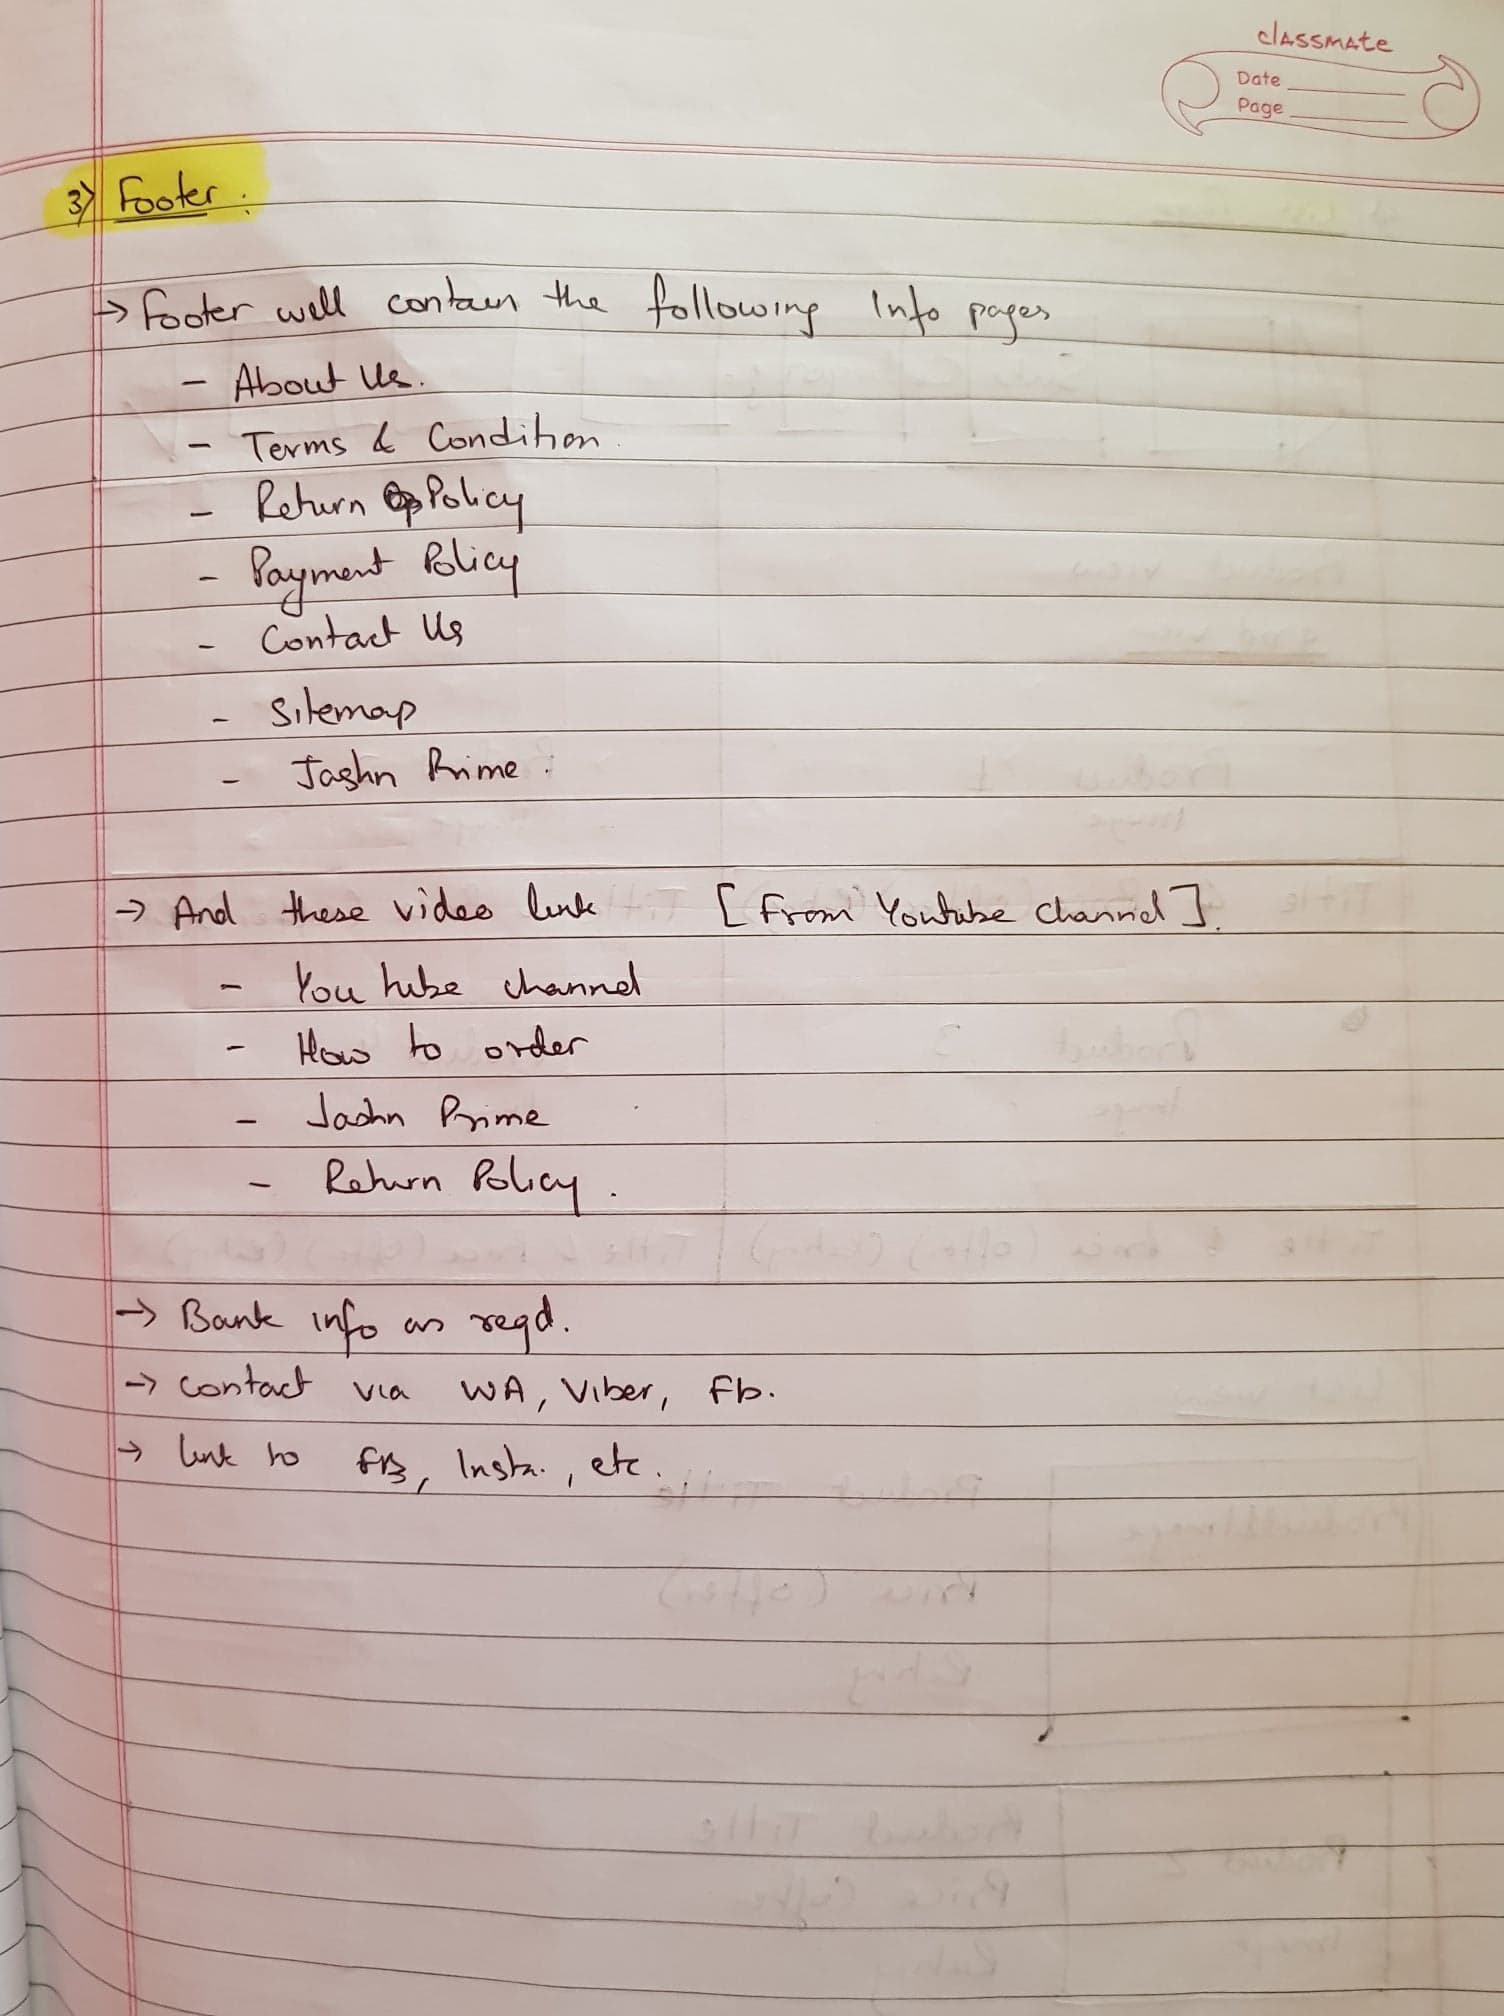 classmate
Date
Page
3) Footer :
→ Footer will contain the following Info pages
- About Us.
- Terms & Condition.
- Return Policy
- Payment Policy
- Contact Us
- Sitemap
- Jashn Prime .
→ And these video link [From Youtube Channel].
- You tube channel
- How to order
- Jashn Prime
- Return Policy .
→ Bank info as reqd.
→ Contact via WA, Viber, Fb.
→ link to FB, Insta., etc.